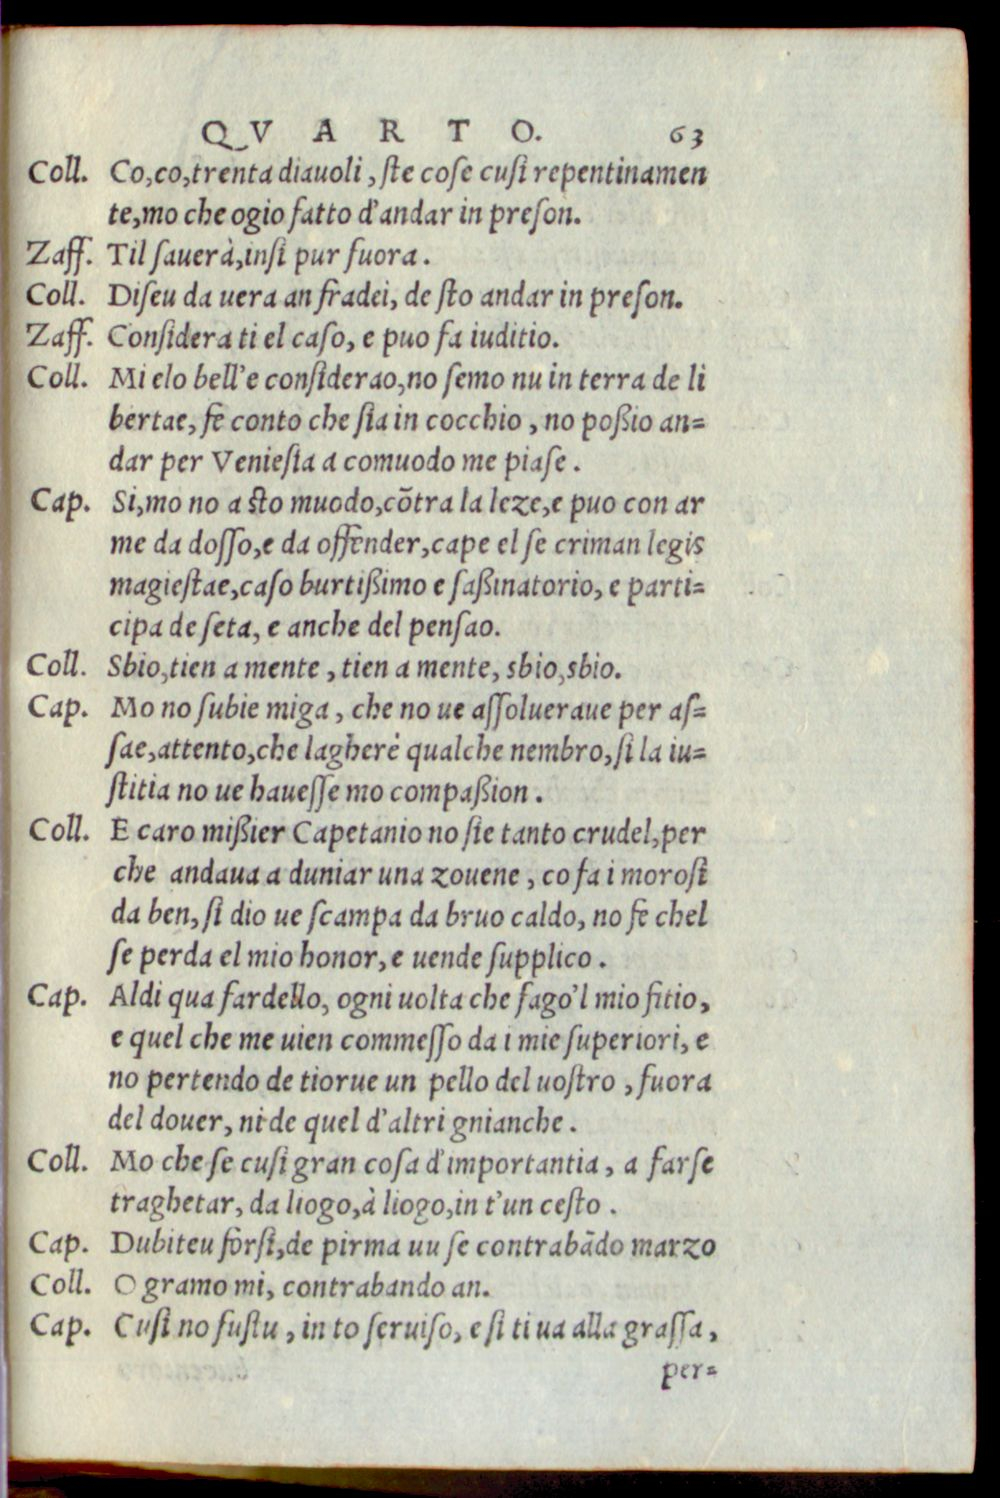 QVARTO. 63
Coll. Co,co,trenta diauoli, ſte coſe cuſi repentinamen
te,mo che ogio fatto d'andar in preſon.
Zaff. Til ſauerà,inſi pur fuora.
Coll. Diſeu da uera an fradei, de ſto andar in preſon.
Zaff. Conſidera ti el caſo, e puo fa iuditio.
Coll. Mi elo bell'e conſiderao,no ſemo nu in terra de li
bertae, fe conto che ſia in cocchio, no poßio an=
dar per Venieſia a comuodo me piaſe.
Cap. Si,mo no a ſto muodo,cõtra la leze,e puo con ar
me da doſſo,e da offender,cape el ſe criman legis
magieſtae,caſo burtißimo e ſaßinatorio, e parti=
cipa de ſeta, e anche del penſao.
Coll. Sbio,tien a mente, tien a mente, sbio,sbio.
Cap. Mo no ſubie miga, che no ue aſſolueraue per aſ=
ſae,attento,che lagherè qualche nembro,ſi la iu=
ſtitia no ue haueſſe mo compaßion.
Coll. E caro mißier Capetanio no ſie tanto crudel,per
che andaua a duniar una zouene, co fa i moroſi
da ben, ſi dio ue ſcampa da bruo caldo, no fe chel
ſe perda el mio honor, e uende ſupplico.
Cap. Aldi qua fardello, ogni uolta che fago'l mio fitio,
e quel che me uien commeſſo da i mie ſuperiori, e
no pertendo de tiorue un pello del uoſtro, fuora
del douer, ni de quel d'altri gnianche.
Coll. Mo che ſe cuſi gran coſa d'importantia, a farſe
traghetar, da liogo,à liogo,in t'un ceſto.
Cap. Dubiteu forſi,de pirma uu ſe contrabãdo marzo
Coll. O gramo mi, contrabando an.
Cap. Cuſi no fuſtu, in to ſeruiſo, e ſi ti ua alla graſſa,
per=